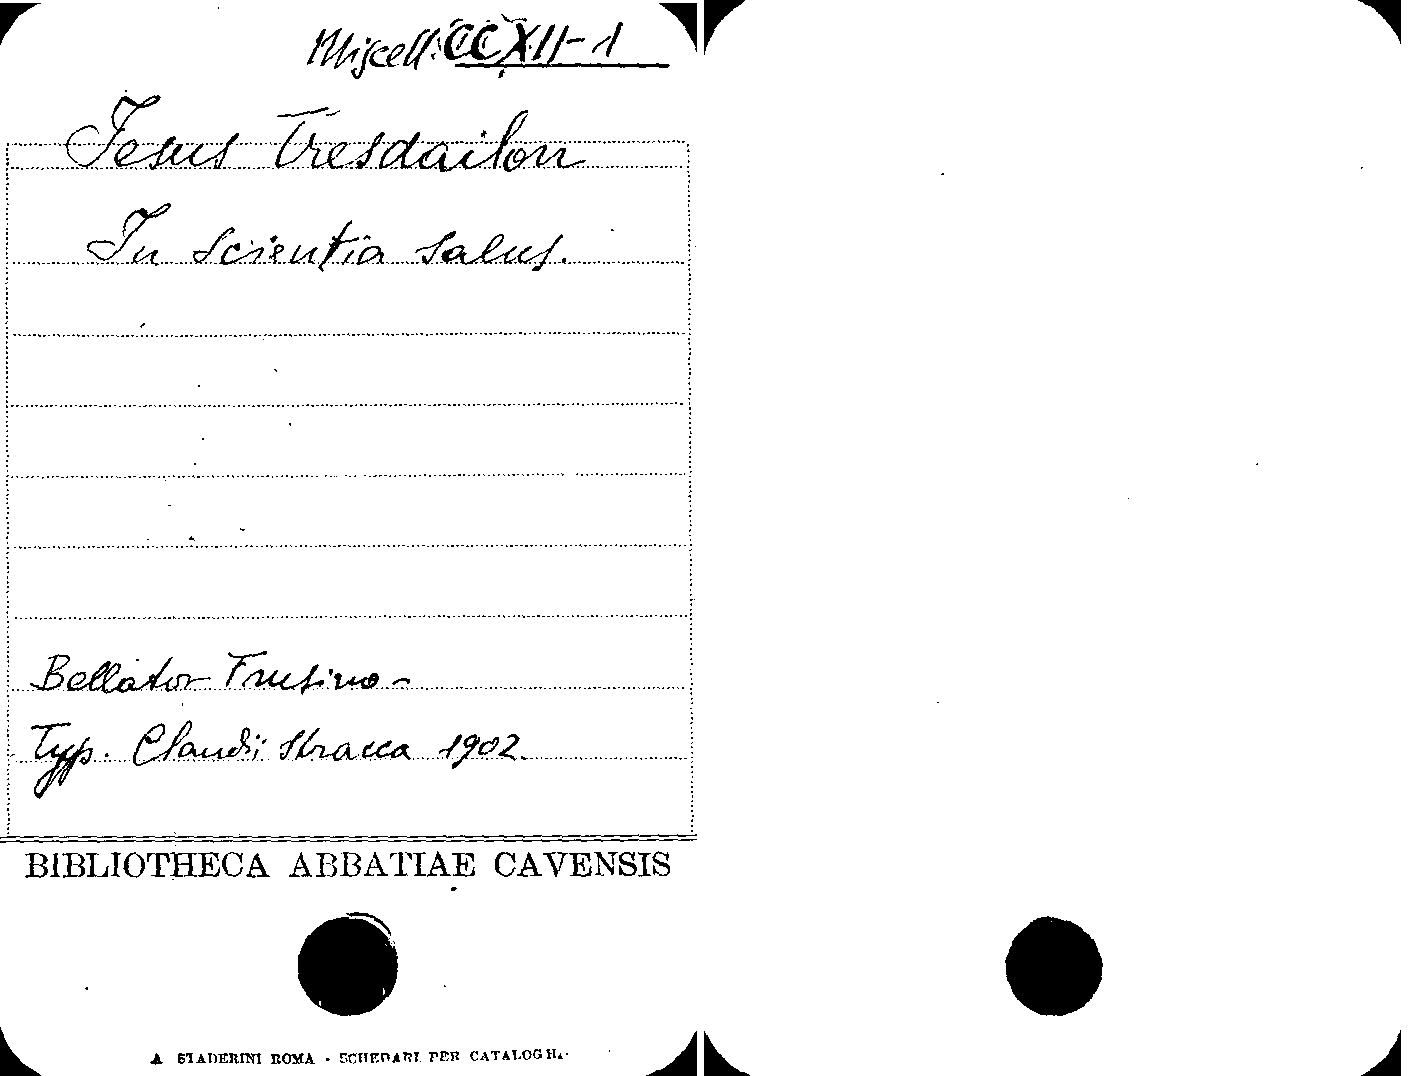 Miscell. CCXII-1
Jesus Tresdailon
In scientia salus.
Bellator Frusino -
Typ. Claudii Stracca 1902.
BIBLIOTHECA ABBATIAE CAVENSIS
A STADERINI ROMA - SCHEDARI PER CATALOGHI